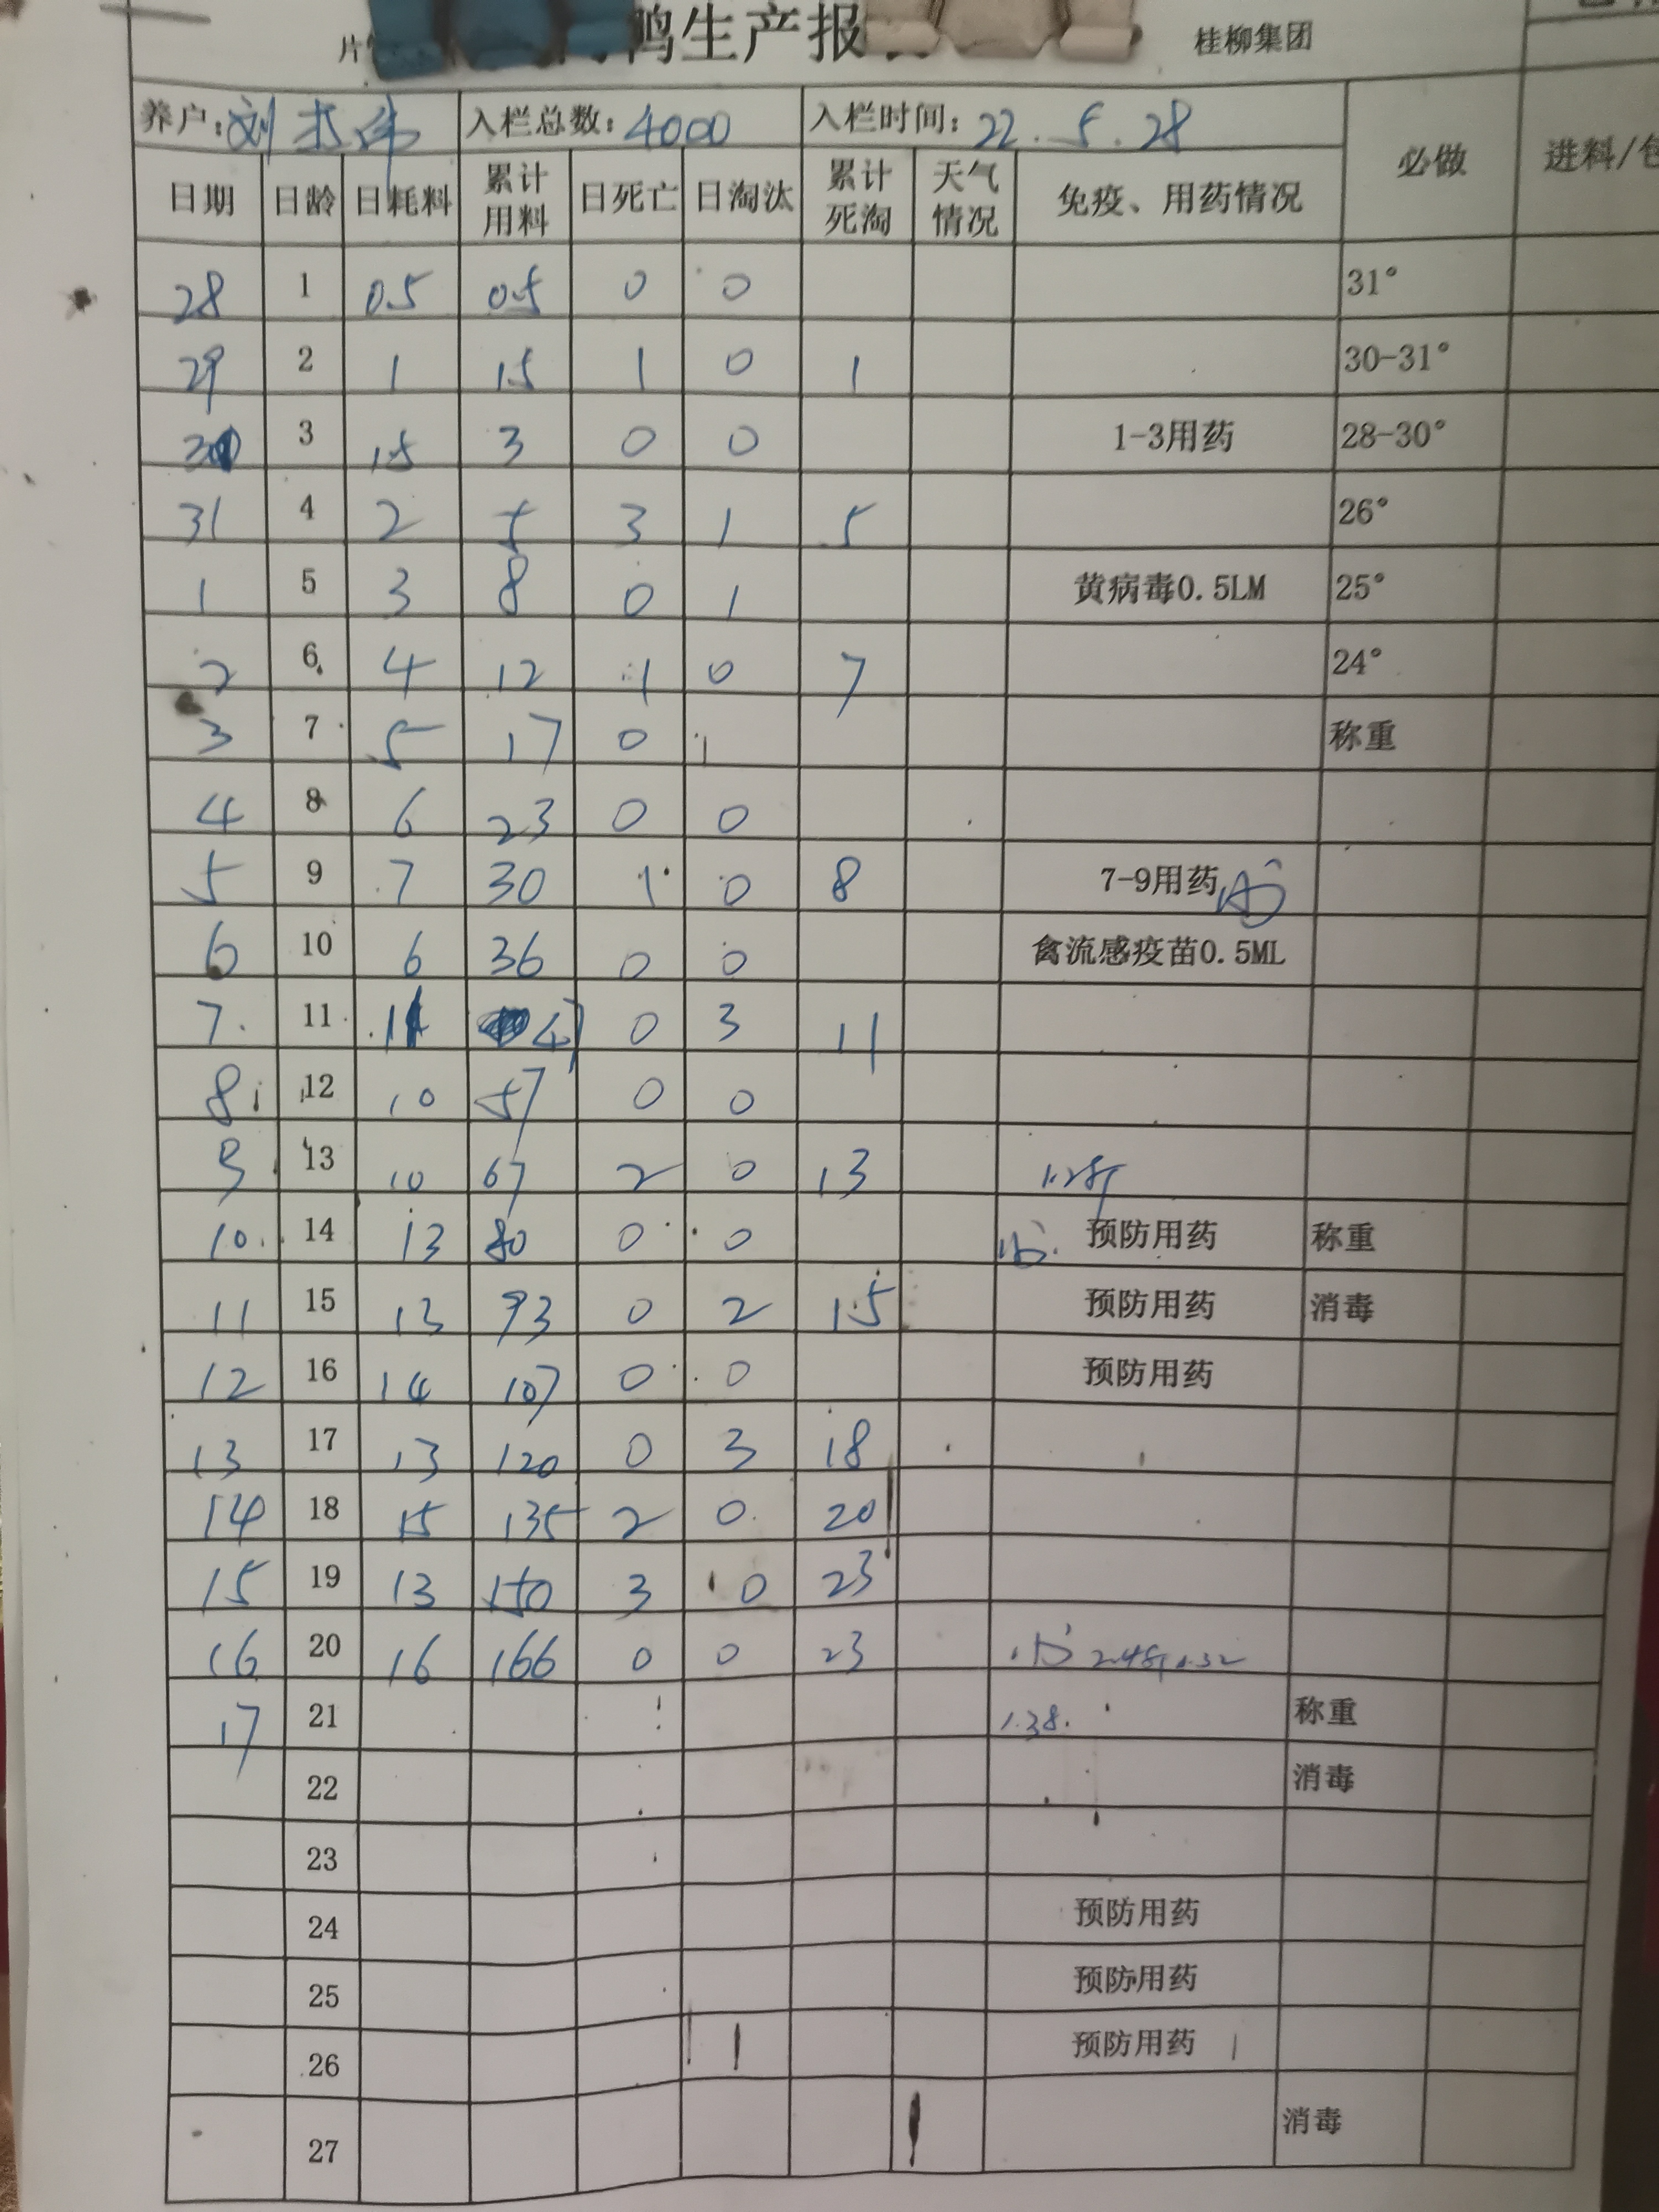 鸭生产报 桂柳集团
养户: 刘 入栏总数: 4000 入栏时间: 22.5.28 必做 进料/包
日期 日龄 日耗料 累计用料 日死亡 日淘汰 累计死淘 天气情况 免疫、用药情况
28 1 0.5 0.5 0 0 31°
29 2 1 1.5 1 0 1 30-31°
30 3 1.5 3 0 0 1-3用药 28-30°
31 4 2 5 3 1 5 26°
1 5 3 8 0 1 黄病毒0.5LM 25°
2 6 4 12 1 0 7 24°
3 7 5 17 0 1 称重
4 8 6 23 0 0
5 9 7 30 1 0 8 7-9用药
6 10 6 36 0 0 禽流感疫苗0.5ML
7 11 11 47 0 3 11
8 12 10 57 0 0
9 13 10 67 2 0 13
10 14 13 80 0 0 预防用药 称重
11 15 13 93 0 2 15 预防用药 消毒
12 16 14 107 0 0 预防用药
13 17 13 120 0 3 18
14 18 15 135 2 0 20
15 19 13 150 3 0 23
16 20 16 166 0 0 23
17 21 1.38. 称重
22 消毒
23
24 预防用药
25 预防用药
26 预防用药
27 消毒